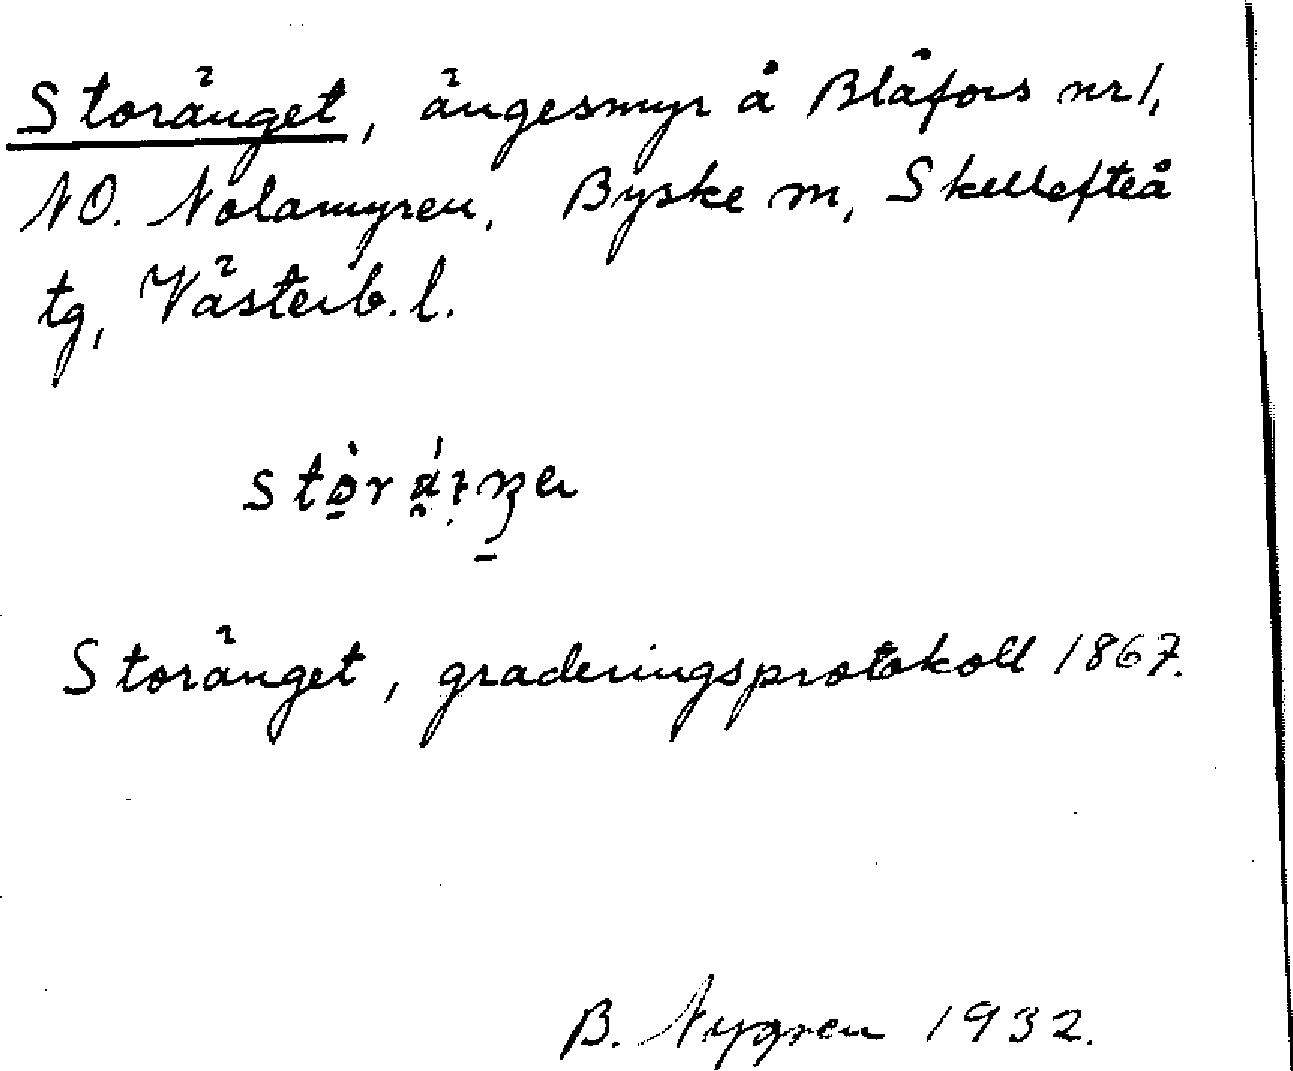 Storänget, ängesmyr å Blåfors nr 1,
NO. Nolamyren, Byske sn, Skellefteå
tg, Västerb. l.
Storänget, graderingsprotokoll 1867.
B. Nygren 1932.